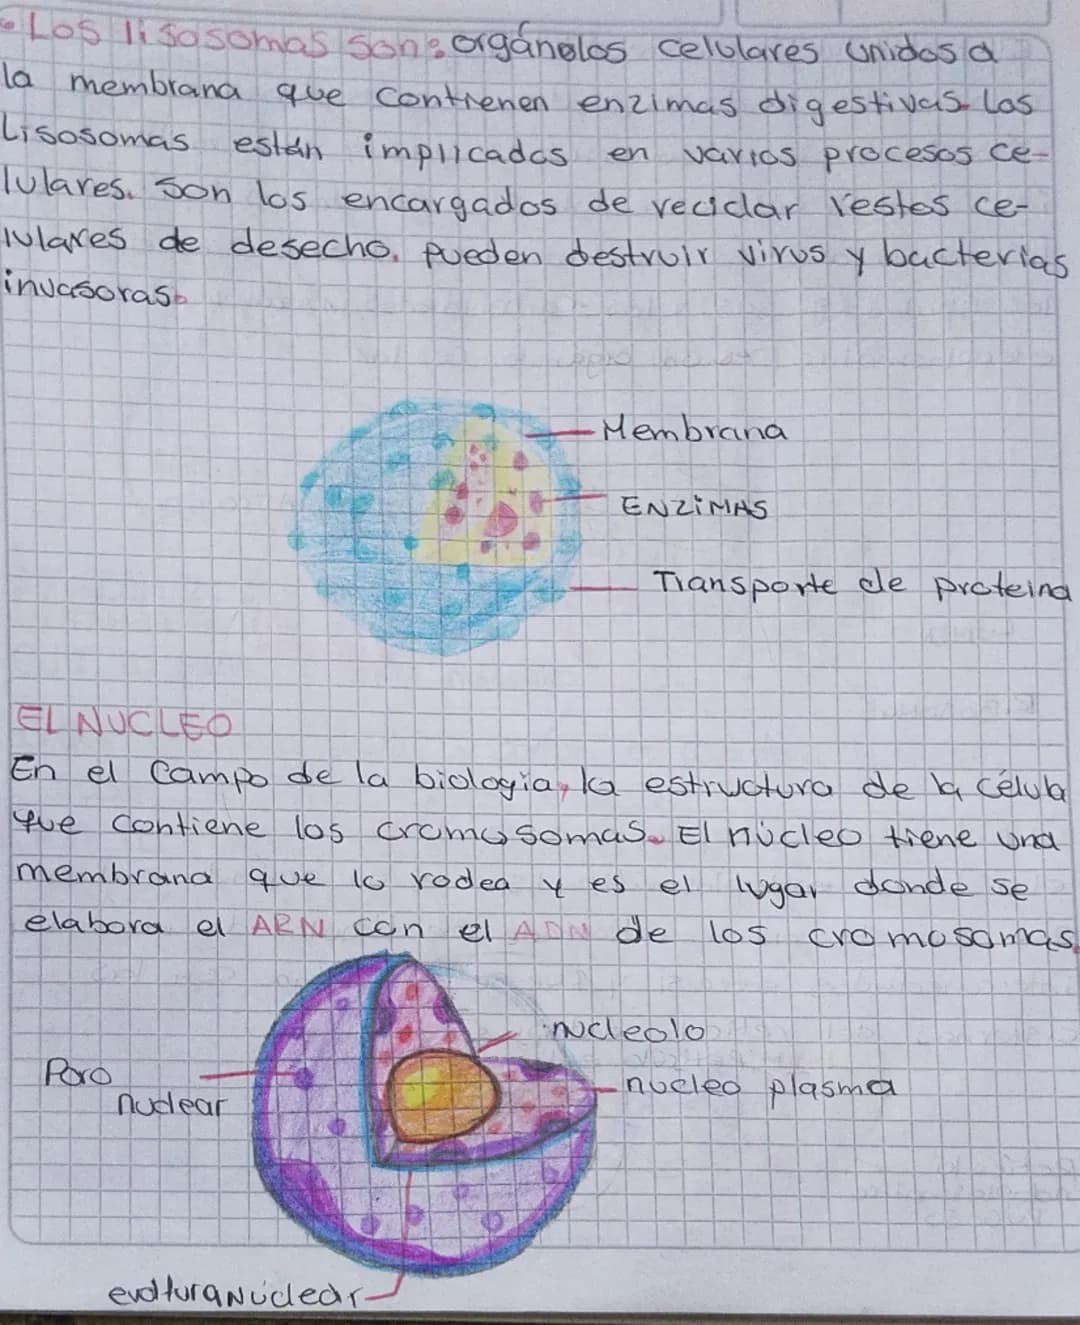 • Los lisosomas son: orgánelos celulares unidos a
la membrana que contienen enzimas digestivas. Los
Lisosomas están implicados en varios procesos ce-
lulares. Son los encargados de reciclar restos ce-
lulares de desecho. pueden destruir virus y bacterias
invasoras.
Membrana
ENZiMAS
Transporte de proteina
EL NUCLEO
En el campo de la biologia, la estructura de la célula
que contiene los cromosomas. El núcleo tiene una
membrana que lo rodea y es el lugar donde se
elabora el ARN con el ADN de los cromosomas.
nucleolo
Poro
nucleo plasma
nuclear
evoltura Núclear